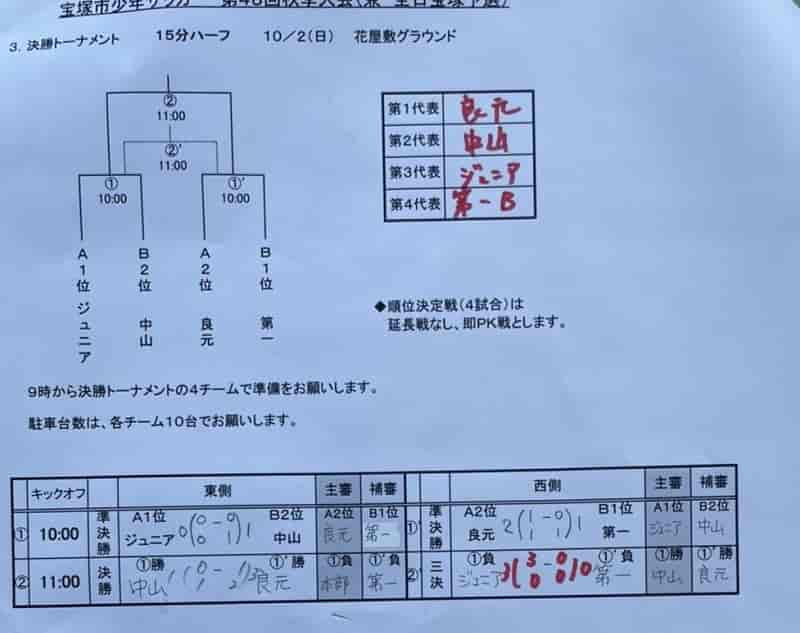 宝塚市少年サッカー 第48回秋季大会(兼 全日宝塚予選)
3. 決勝トーナメント 15分ハーフ 10/2(日) 花屋敷グラウンド
②
11:00
②'
11:00
① ①'
10:00 10:00
A1位 ジュニア
B2位 中山
A2位 良元
B1位 第一
第1代表 良元
第2代表 中山
第3代表 ジュニア
第4代表 第一B
◆順位決定戦(4試合)は
延長戦なし、即PK戦とします。
9時から決勝トーナメントの4チームで準備をお願いします。
駐車台数は、各チーム10台でお願いします。
キックオフ 東側 主審 補審 西側 主審 補審
① 10:00 準決勝 A1位 ジュニア 0(0-0 0 1)1 B2位 中山 A2位 良元 B1位 第一 ①' 準決勝 A2位 良元 2(1-0 1 1)1 B1位 第一 A1位 ジュニア B2位 中山
② 11:00 決勝 ①勝 中山 1(0- 1 2 ①'勝 良元 ①負 本部 ①'負 第一 ②' 三決 ①負 ジュニア 3(3-0 0 0)0 ①'負 第一 ①勝 中山 ①'勝 良元